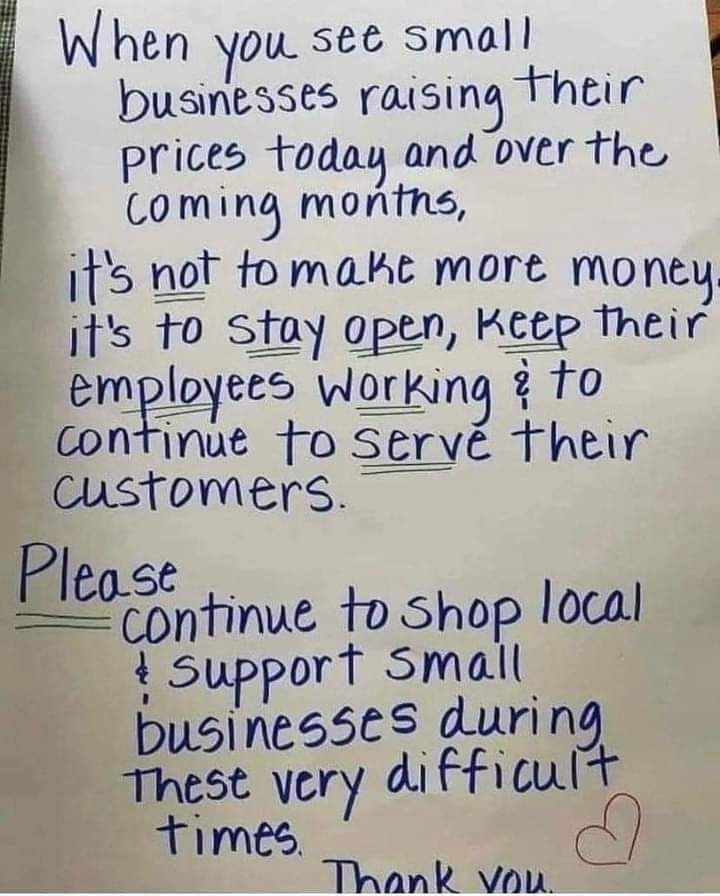 When you see small
businesses raising their
prices today and over the
coming months,
it's not to make more money.
it's to stay open, Keep their
employees working & to
continue to serve their
customers.
Please
continue to shop local
& support small
businesses during
These very difficult
times.
Thank you.